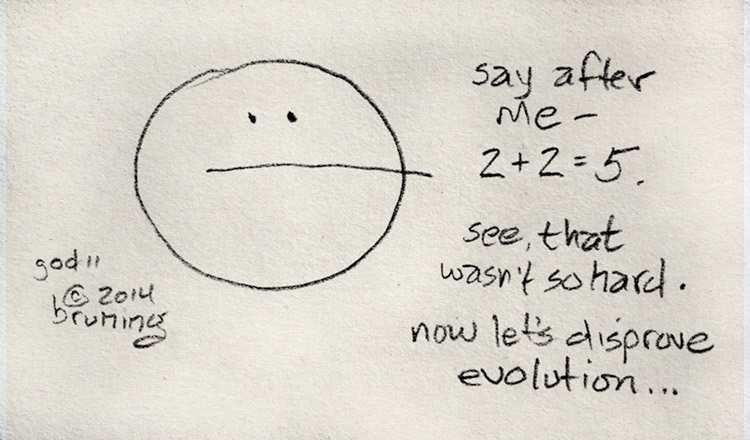 say after
me -
2+2=5.
see, that
wasn't so hard.
now let's disprove
evolution...
god 11
© 2014
bruming